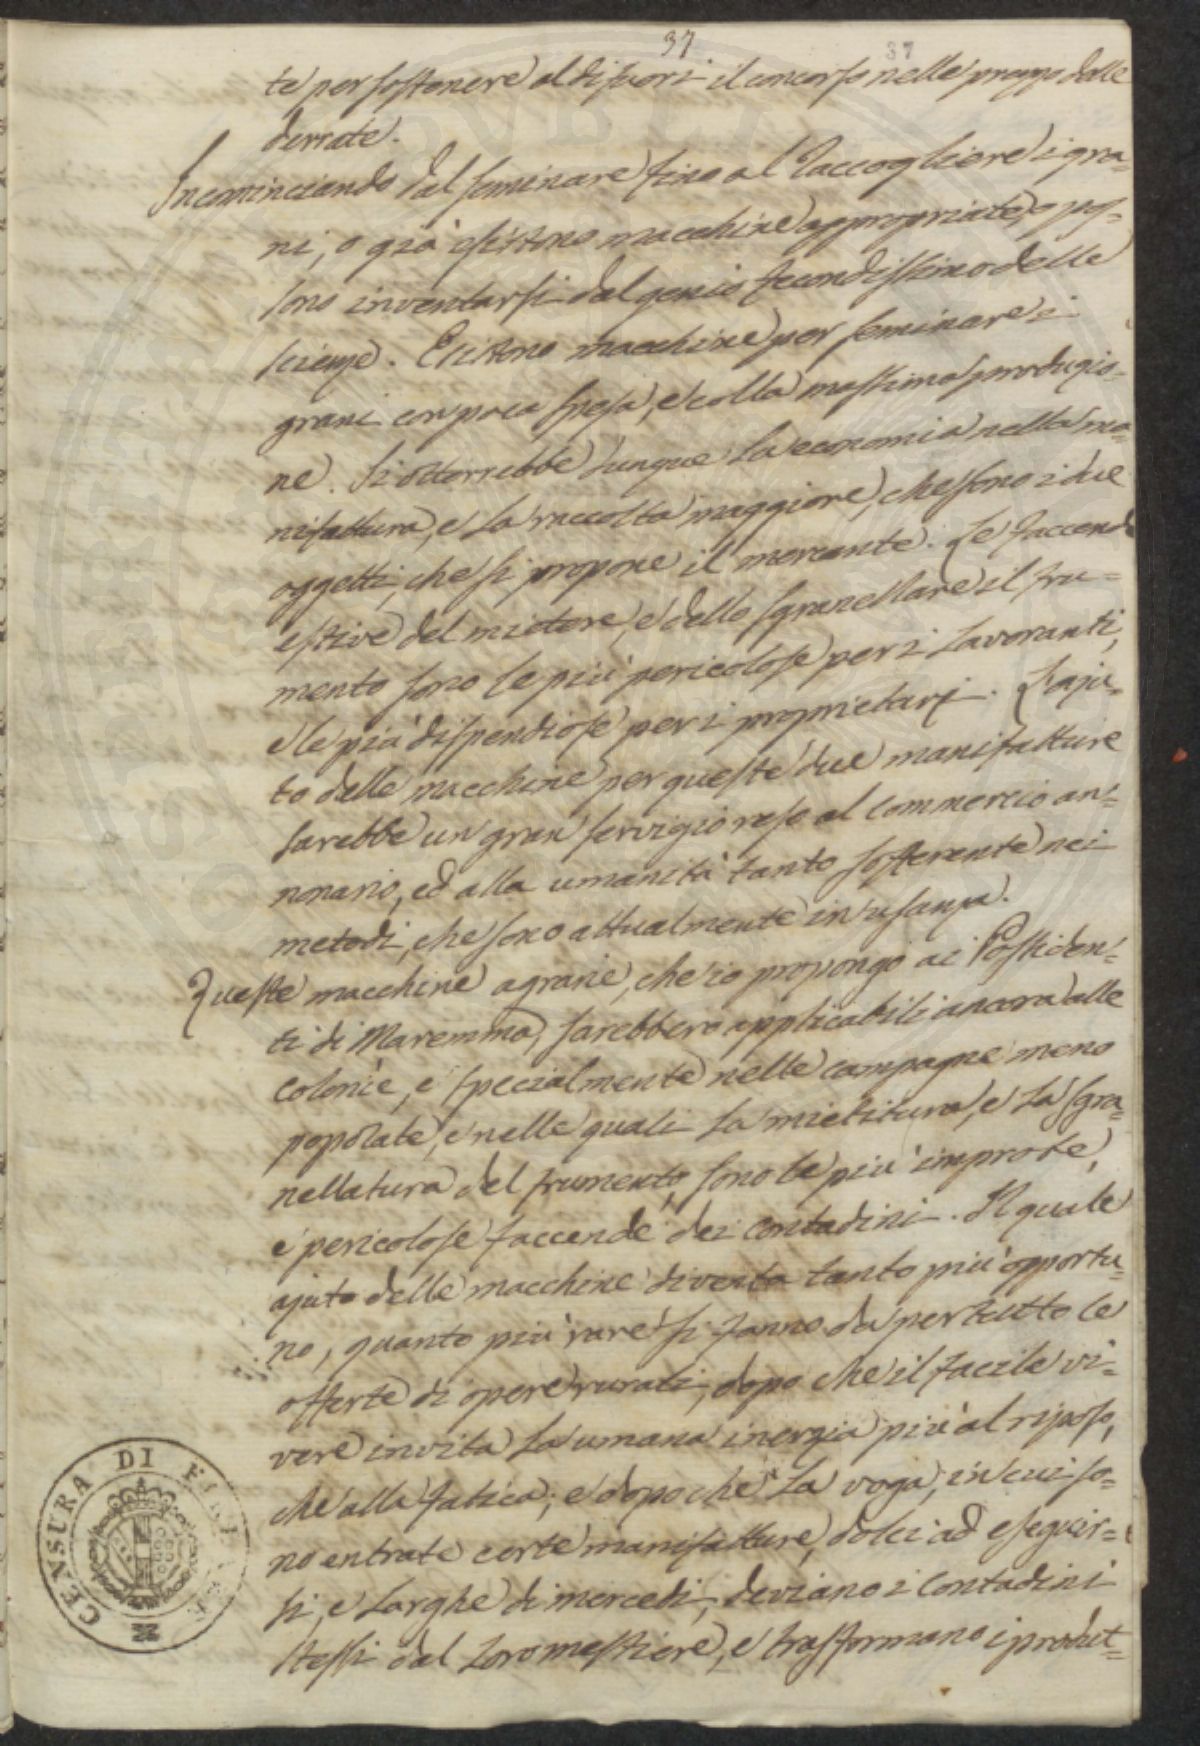 37 37
te per sostenere al di fuori il concorso nelle prezzo delle
derrate.
Incominciando dal seminare fino al Raccogliere i gra-
ni, o già esistono macchine appropriate, o pos-
sono inventarsi dal genio fecondissimo delle
scienze. Esistono macchine per seminare i
grani con poca spesa, e colla massima produzio-
ne. Si otterrebbe dunque la economia nella ma-
nifattura, e la raccolta maggiore, che sono i due
oggetti, che si propone il mercante. Le faccende
estive del mietere, e dello sgranellare il fru=
mento sono le più pericolose per i lavoranti,
e le più dispendiose per i proprietarj. L'aju-
to delle macchine per queste due manifatture
sarebbe un gran servigio reso al commercio an=
nonario, ed alla umanità tanto sofferente nei
metodi, che sono attualmente in usanza.
Queste macchine agrarie, che io propongo ai Possiden=
ti di Maremma, sarebbero applicabili ancora alle
colonie, e specialmente nelle campagne meno
popolate, e nelle quali la mietitura, e la sgra=
nellatura del frumento, sono le più improbe,
e pericolose faccende dei contadini. Il quale
ajuto delle macchine diventa tanto più opportu=
no, quanto più rare si fanno da pertutto le
offerte di opere rurali, dopo che il facile vi=
vere invita la umana inerzia più al riposo,
che alla fatica; e dopo che la voga, in cui so=
no entrate certe manifatture, dolci ad eseguir=
si, e larghe di mercedi, deviano i contadini
stessi dal loro mestiere, e trasformano i produt=
CENSURA DI FIRENZE